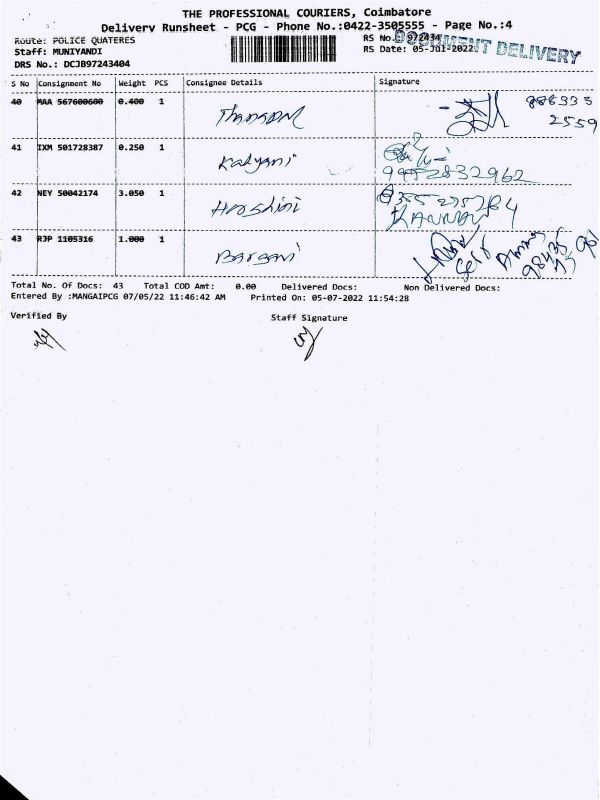 THE PROFESSIONAL COURIERS, Coimbatore
Delivery Runsheet - PCG - Phone No.:0422-3505555 - Page No.:4
Route: POLICE QUATERES RS No.
Staff: MUNIYANDI RS Date: 05-Jul-2022
DOCUMENT DELIVERY
DRS No.: DCJB97243404
S No Consignment No Weight PCS Consignee Details Signature
40 MAA 567600600 0.400 1 888333
2559
41 IXM 501728387 0.250 1 Kalyani
9952832962
42 NEY 50042174 3.050 1 Harshini
KANNAN
43 RJP 1105316 1.000 1 Bargavi
Total No. Of Docs: 43 Total COD Amt: 0.00 Delivered Docs: Non Delivered Docs:
Entered By :MANGAIPCG 07/05/22 11:46:42 AM Printed On: 05-07-2022 11:54:28
Verified By Staff Signature